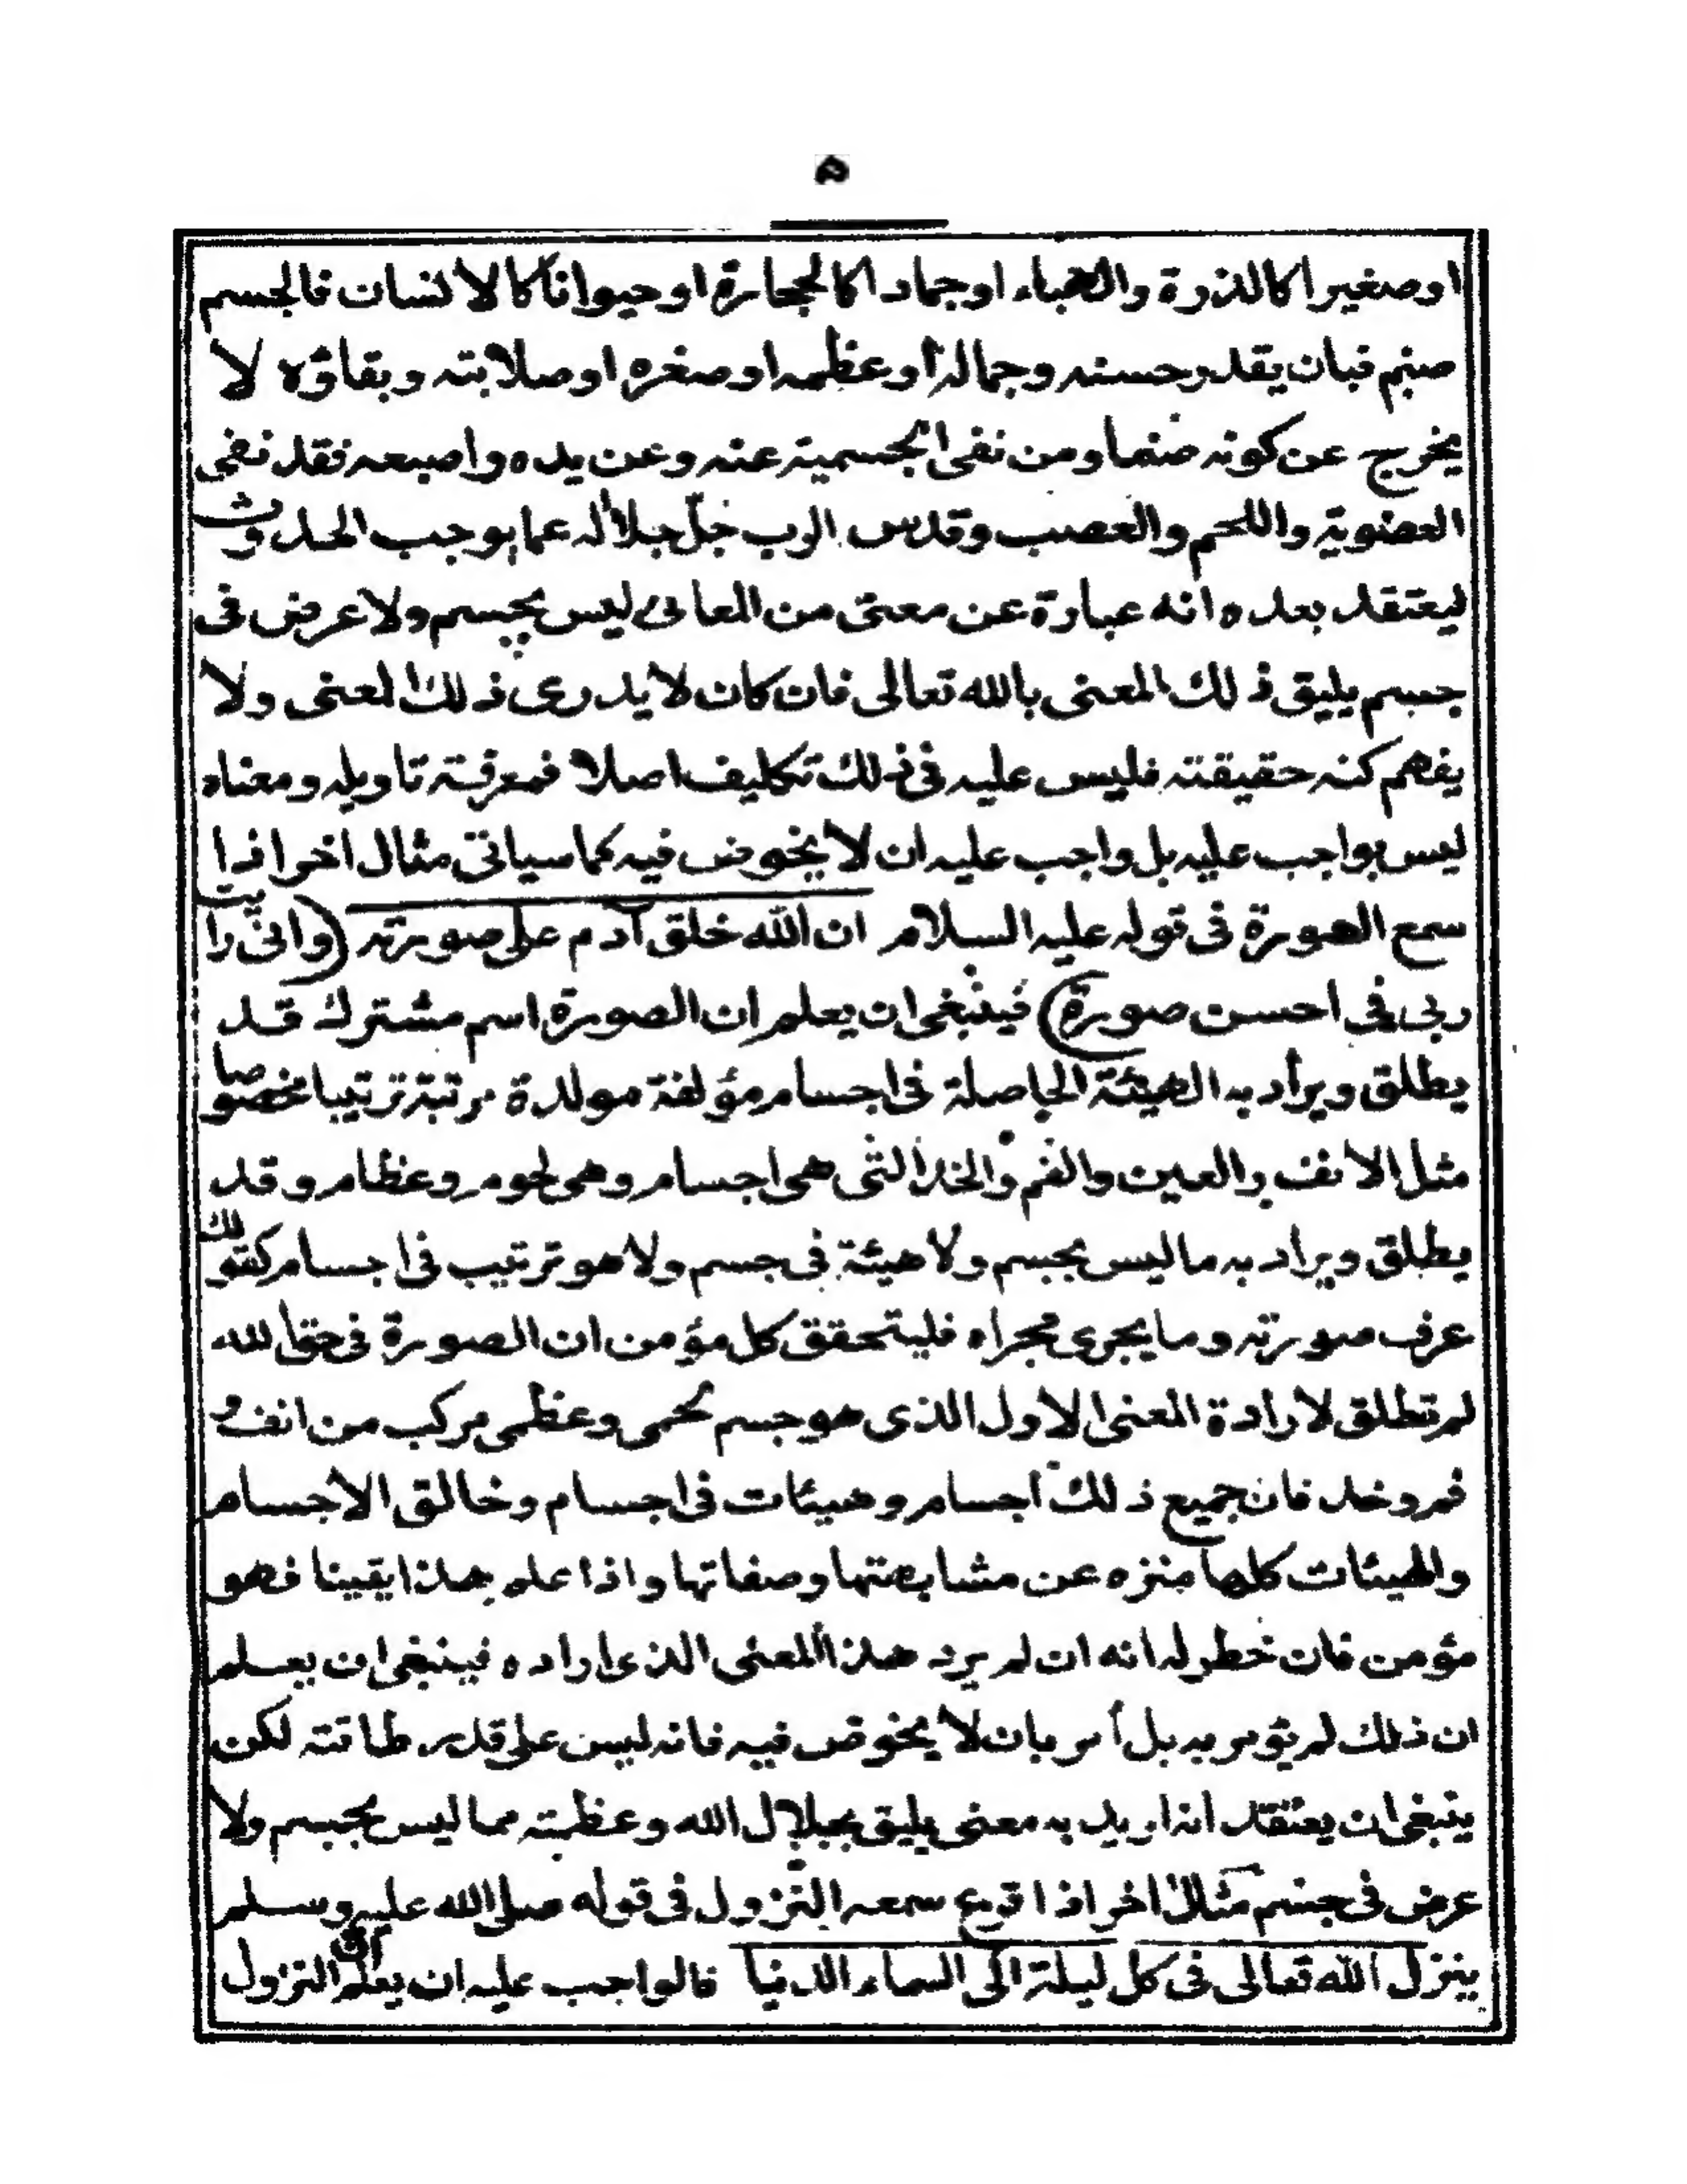 ۵
اوصغيرا كالذرة والهباء اوجمادا كالحجارة اوحيوانا كالانسان فالجسم
صنم فبان يقدر حسنه وجماله أوعظمه اوصغره اوصلابته وبقاؤه لا
يخرج عن كونه صنما ومن نفى الجسمية عنه وعن يده واصبعه فقد نفى
العضوية واللحم والعصب وقدس الرب جلّ جلاله عما يوجب الحدوث
ليعتقد بعده انه عبارة عن معنى من المعانى ليس بجسم ولا عرض فى
جسم يليق ذلك المعنى بالله تعالى فان كان لايدرى ذلك المعنى ولا
يفهم كنه حقيقته فليس عليه فى ذلك تكليف اصلا فمعرفة تاويله ومعناه
ليس بواجب عليه بل واجب عليه ان لا يخوض فيه كما سياتى مثال اخر اذا
سمع الصورة فى قوله عليه السلام ان الله خلق آدم على صورته (وانى رايت
ربى فى احسن صورة) فينبغى ان يعلم ان الصورة اسم مشترك قد
يطلق ويراد به الهيئة الحاصلة فى اجسام مؤلفة مولدة مرتبة ترتيبا مخصوصا
مثل الانف والعين والفم والخد التى هى اجسام وهى لحوم وعظام وقد
يطلق ويراد به ماليس بجسم ولا هيئة فى جسم ولا هو ترتيب فى اجسام كقولك
عرف صورته وما يجرى مجراه فليتحقق كل مؤمن ان الصورة فى حق الله
لم تطلق لارادة المعنى الاول الذى هو جسم لحمى وعظمى مركب من انف و
فم وخد فان جميع ذلك اجسام وهيئات فى اجسام وخالق الاجسام
والهيئات كلها منزه عن مشابهتها وصفاتها واذا علم هذا يقينا فهو
مؤمن فان خطر له انه ان لم يرد هذا المعنى الذى اراده فينبغى ان يعلم
ان ذلك لم يؤمر به بل أمر بان لا يخوض فيه فانه ليس على قدر طاقته لكن
ينبغى ان يعتقد انه اريد به معنى يليق بجلال الله وعظمته مما ليس بجسم ولا
عرض فى جسم مثال اخر اذا قرع سمعه النزول فى قوله صلى الله عليه وسلم
ينزل الله تعالى فى كل ليلة الى السماء الدنيا فالواجب عليه ان يعلم ان النزول